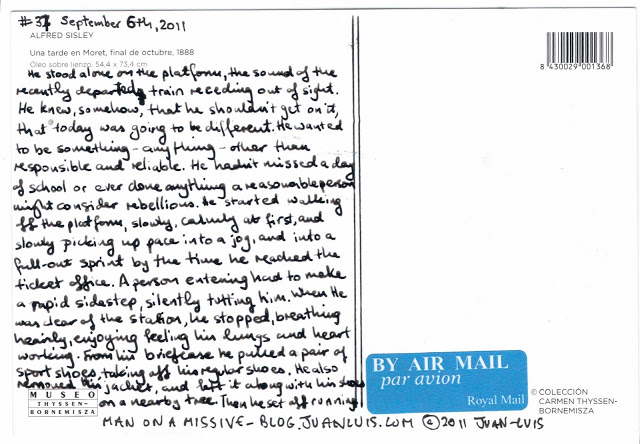 #37 September 6th, 2011
ALFRED SISLEY
Una tarde en Moret, final de octubre, 1888
Óleo sobre lienzo. 54,4 x 73,4 cm
He stood alone on the platform, the sound of the
recently departed train receding out of sight.
He knew, somehow, that he shouldn't get on it,
that today was going to be different. He wanted
to be something - anything - other than
responsible and reliable. He hadn't missed a day
of school or ever done anything a reasonable person
might consider rebellious. He started walking
off the platform, slowly, calmly at first, and
slowly picking up pace into a jog, and into a
full-out sprint by the time he reached the
ticket office. A person entering had to make
a rapid sidestep, silently tutting him. When he
was clear of the station, he stopped, breathing
heavily, enjoying feeling his lungs and heart
working. From his briefcase he pulled a pair of
sport shoes, taking off his regular shoes. He also
removed his jacket, and left it along with his shoes
on a nearby tree. Then he set off running.
MUSEO
THYSSEN-
BORNEMISZA
MAN ON A MISSIVE - BLOG.JUANLUIS.COM © 2011 JUAN-LUIS
8 430029 001368
BY AIR MAIL
par avion
Royal Mail
© COLECCIÓN
CARMEN THYSSEN-
BORNEMISZA